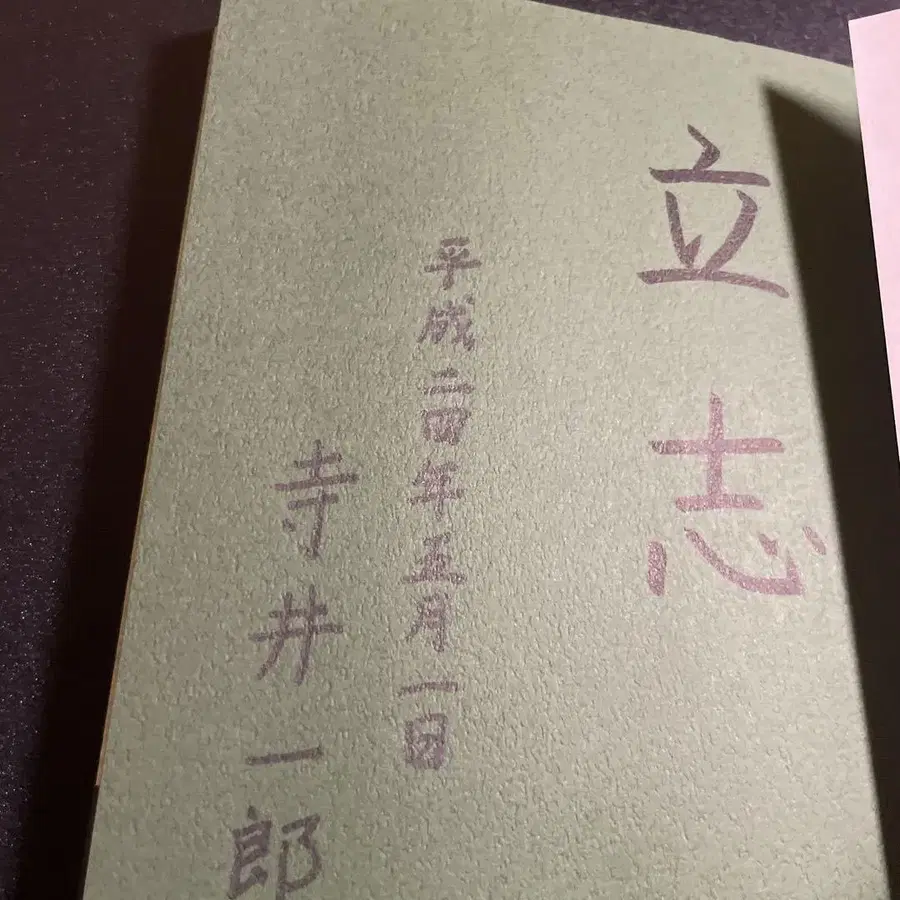 立志
平成二四年五月一日
寺井一郎